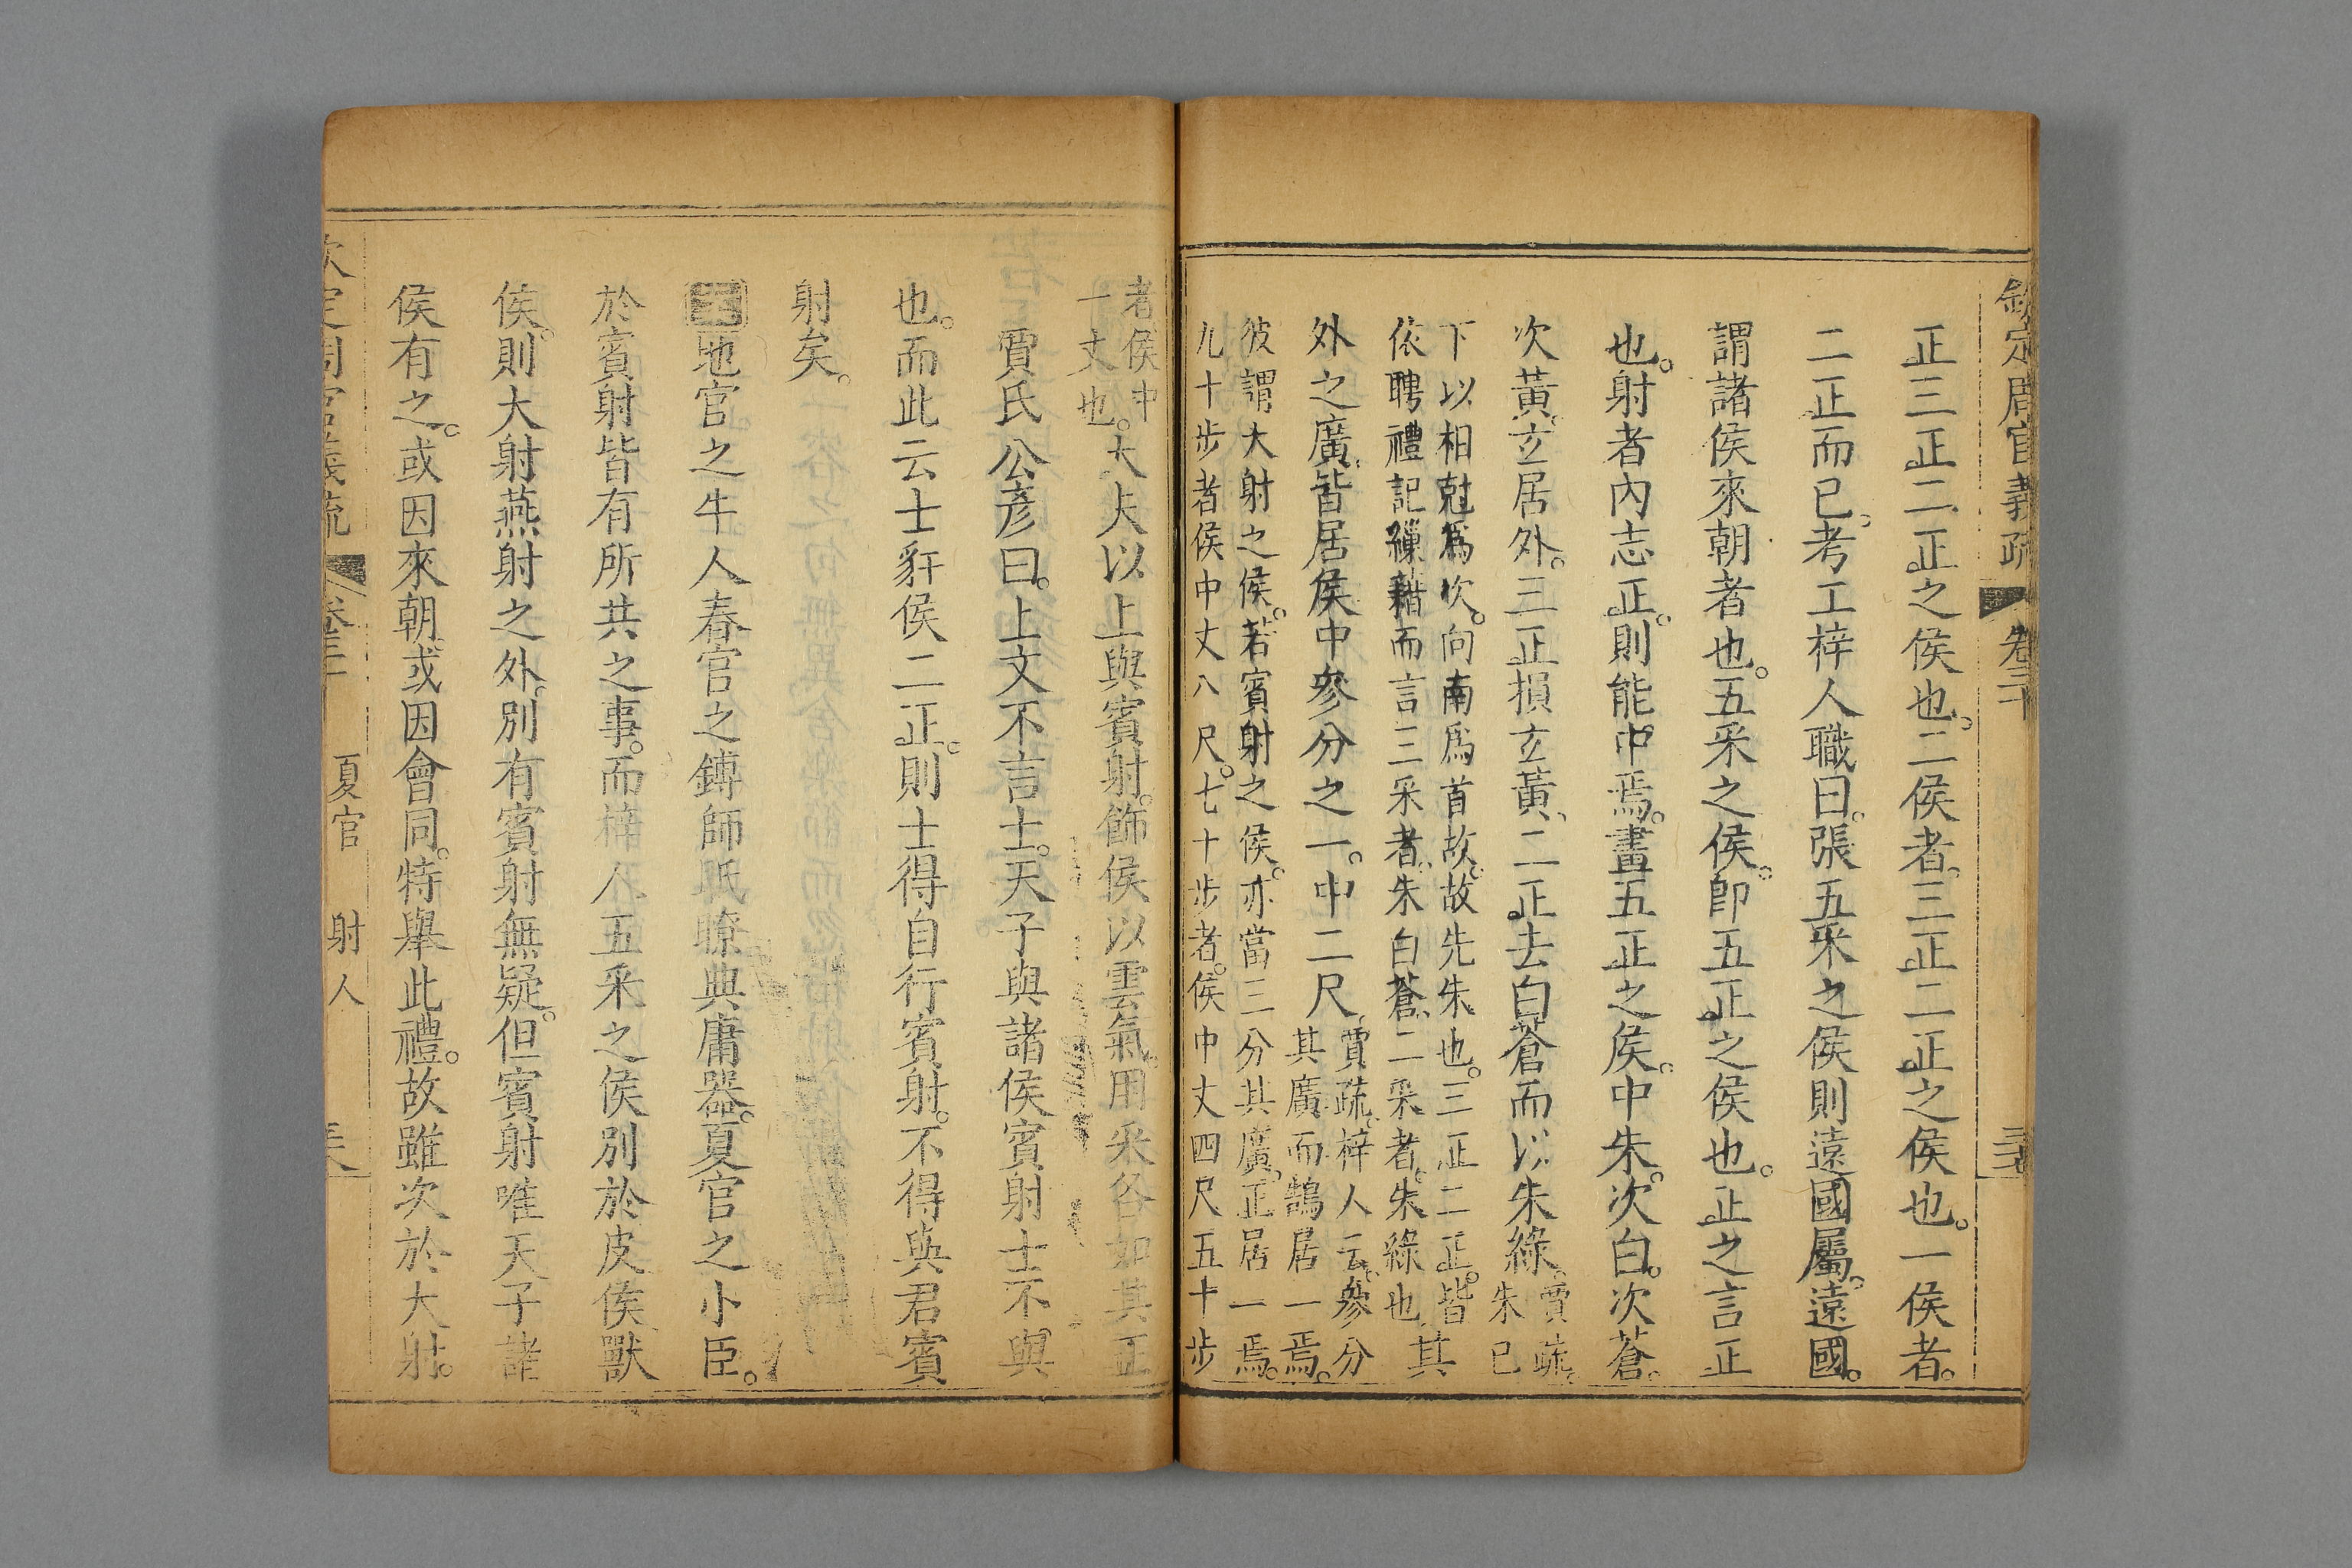 欽定周官義疏 卷三十
正三正二正之侯也。二侯者。三正二正之侯也。一侯者。
二正而已。考工梓人職曰。張五采之侯則遠國屬。遠國。
謂諸侯來朝者也。五采之侯。卽五正之侯也。正之言正
也。射者內志正。則能中焉。畫五正之侯。中朱。次白。次蒼。
次黃。玄居外。三正損玄黃、二正去白蒼而以朱綠。賈疏。
朱已
下以相尅爲次。向南爲首故。故先朱也。三正二正。皆
依聘禮記繅藉而言三采者。朱白蒼、二采者。朱綠也。其
外之廣皆居侯中參分之一。中二尺。賈疏。梓人云。參分
其廣而鵠居一焉。
彼謂大射之侯。若賓射之侯。亦當三分其廣。正居一焉。
九十步者侯中丈八尺。七十步者。侯中丈四尺五十步
者侯中
一丈也。大夫以上與賓射。飾侯以雲氣。用采各如其正
賈氏公彥曰。上文不言士。天子與諸侯賓射士不與
也。而此云士豻侯二正。則士得自行賓射。不得與君賓
射矣。
地官之牛人春官之鎛師眡瞭典庸器。夏官之小臣。
於賓射皆有所共之事。而梓人五采之侯別於皮侯獸
侯。則大射燕射之外。別有賓射無疑。但賓射唯天子諸
侯有之。或因來朝或因會同。特舉此禮。故雖次於大射。
定周官義疏 夏官 射人